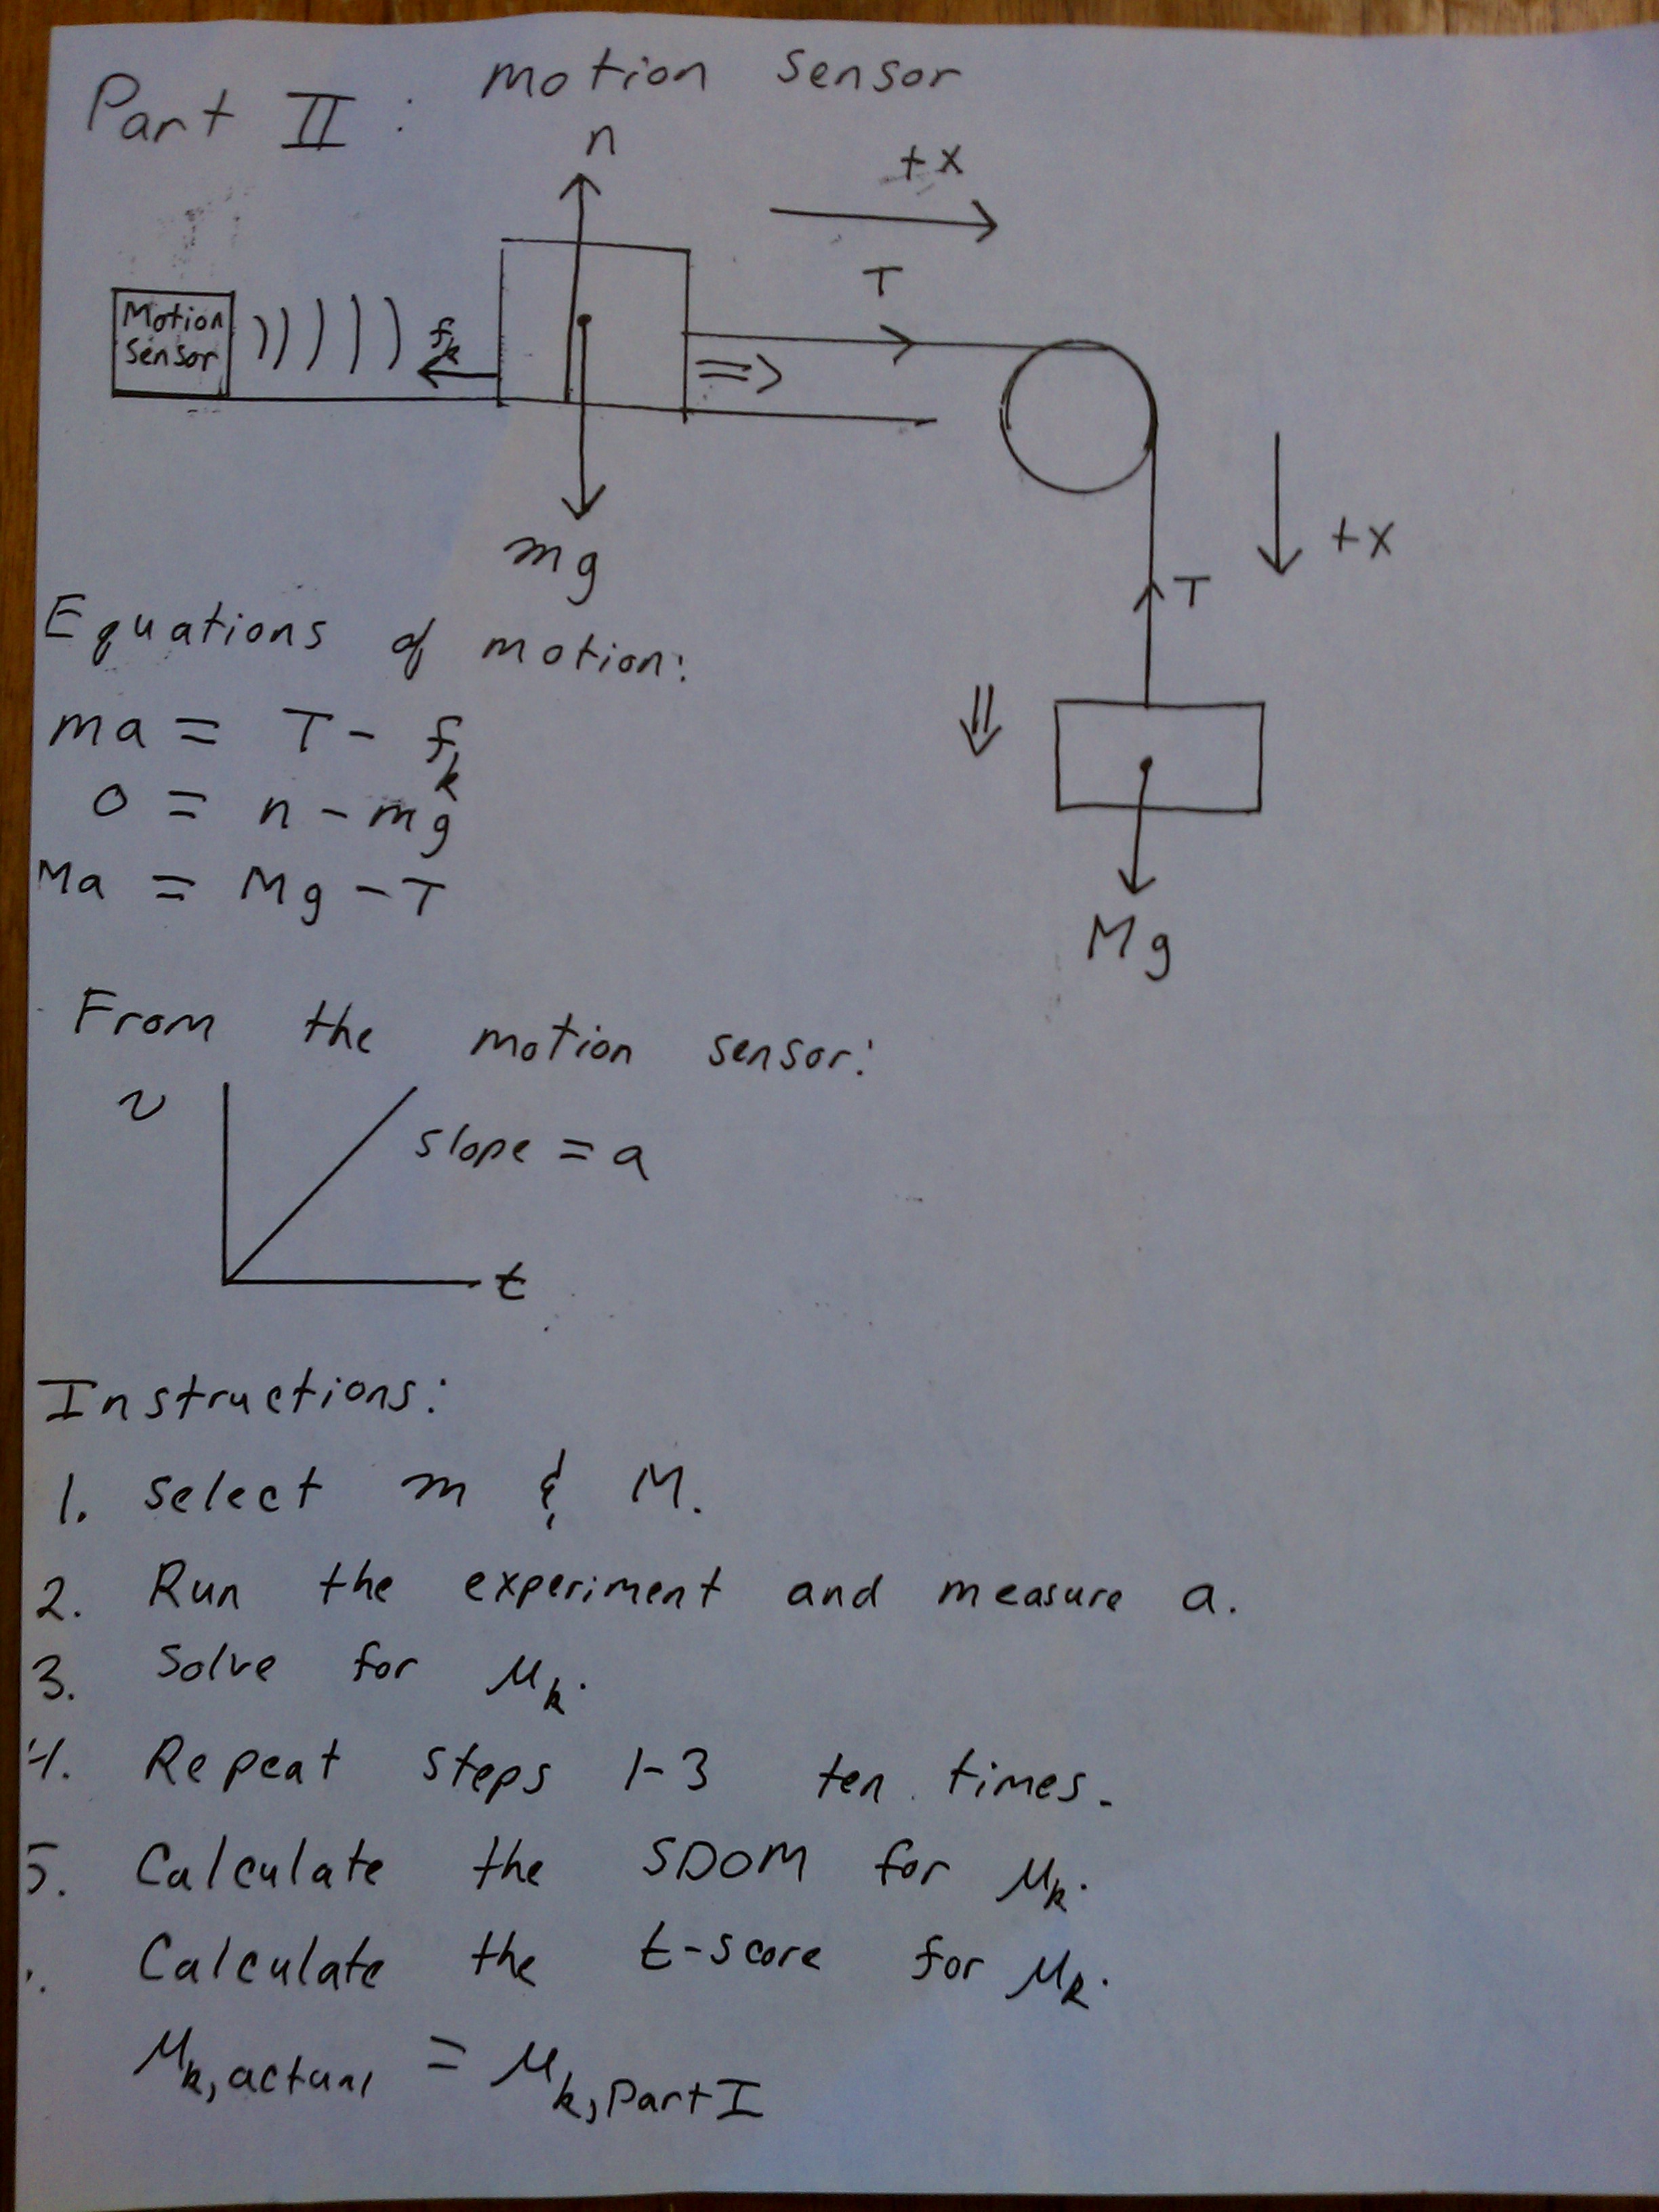 Part II : motion sensor
n
+x
T
Motion
Sensor
fk
+x
mg
T
Equations of motion:
ma = T - fk
0 = n - mg
Ma = Mg - T
Mg
From the motion sensor:
v
slope = a
t
Instructions:
1. Select m & M.
2. Run the experiment and measure a.
3. Solve for μk.
4. Repeat steps 1-3 ten times.
5. Calculate the SDOM for μk.
. Calculate the t-score for μk.
μk, actual = μk, Part I